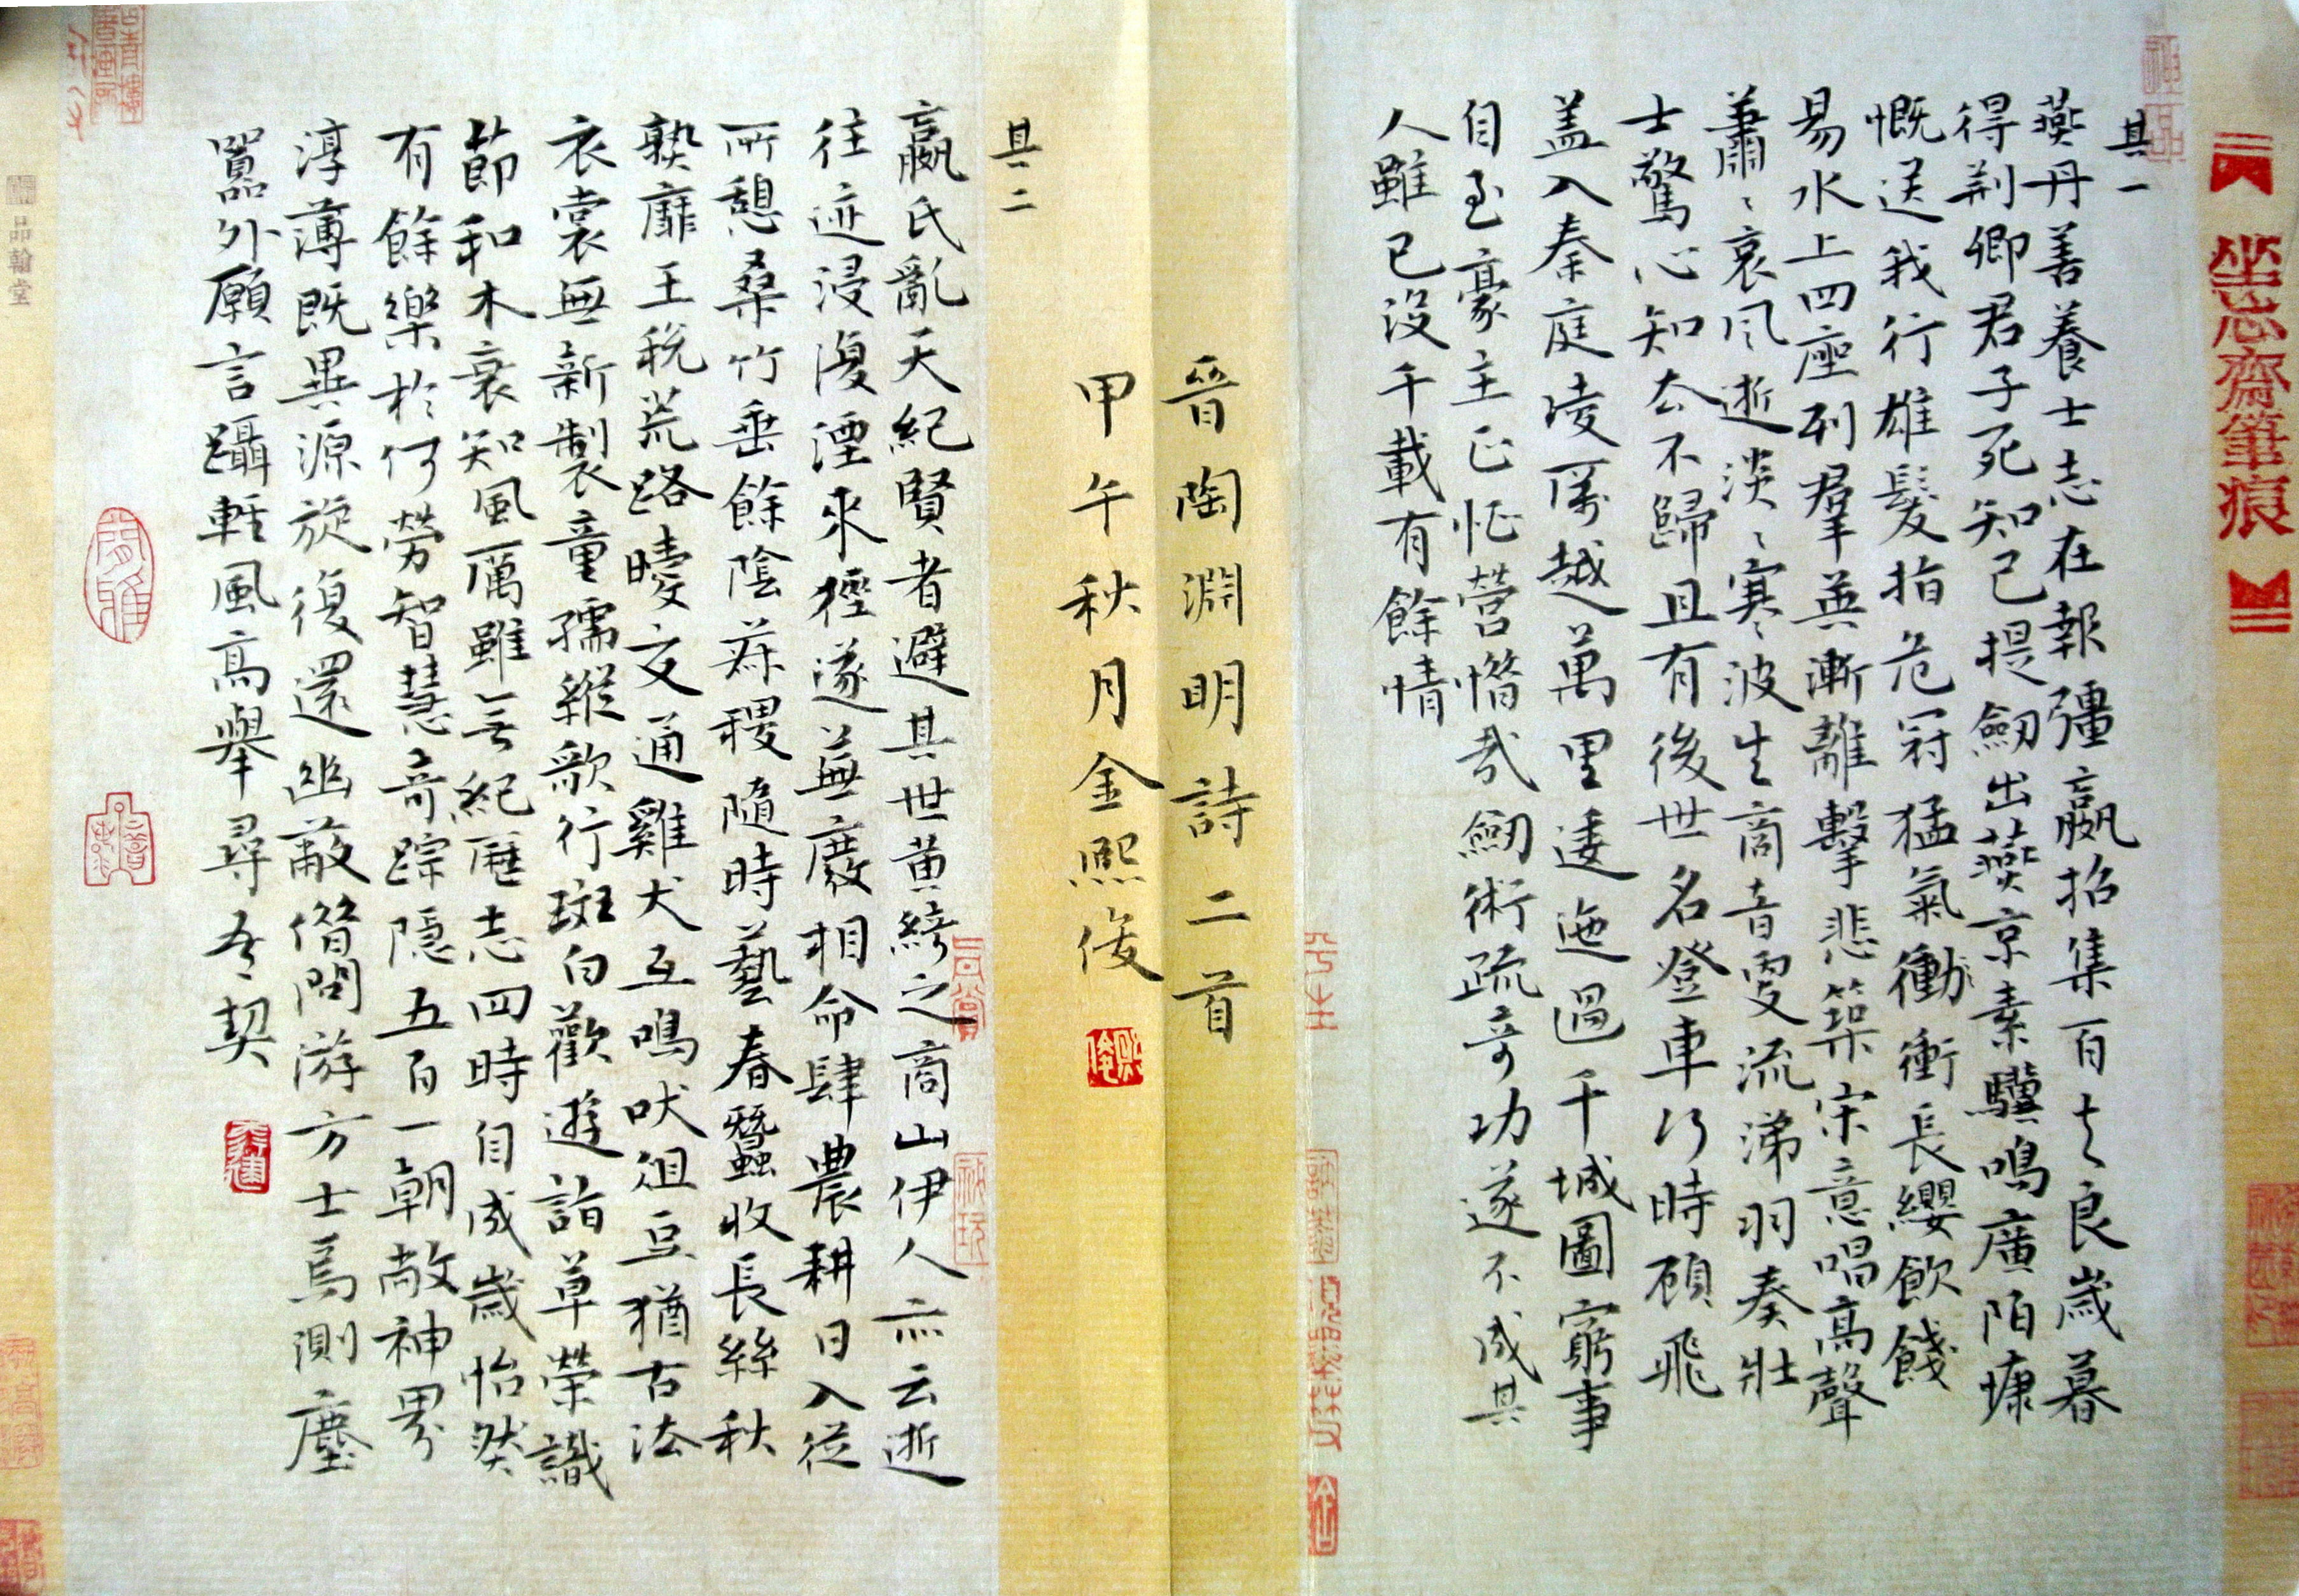 坐忘齋筆痕
其一
燕丹善養士志在報彊嬴招集百夫良歲暮
得荆卿君子死知己提劒出燕京素驥鳴廣陌慷
慨送我行雄髮指危冠猛氣衝長纓飲餞
易水上四座列羣英漸離擊悲築宋意唱高聲
蕭〻哀风逝淡〻寒波生商音更流涕羽奏壯
士驚心知去不歸且有後世名登車何時顧飛
盖入秦庭凌厲越萬里逶迤過千城圖窮事
自至豪主正怔營惜哉劒術疏奇功遂不成其
人雖已没千載有餘情
晉陶淵明詩二首
甲午秋月金熙俊
其二
嬴氏亂天紀賢者避其世黄綺之商山伊人亦云逝
往迹浸復湮來徑遂蕪廢相命肆農耕日入從
所憩桑竹垂餘陰菽稷隨時藝春蠶收長絲秋
熟靡王税荒路曖交通雞犬互鳴吠俎豆猶古法
衣裳無新製童孺縱歌行斑白歡遊詣草榮識
節和木衰知風厲雖無紀歷志四時自成歲怡然
有餘樂於何勞智慧奇踪隱五百一朝敞神界
淳薄既異源旋復還幽蔽借問游方士焉測塵
囂外願言躡輕風高舉尋吾契
品翰堂